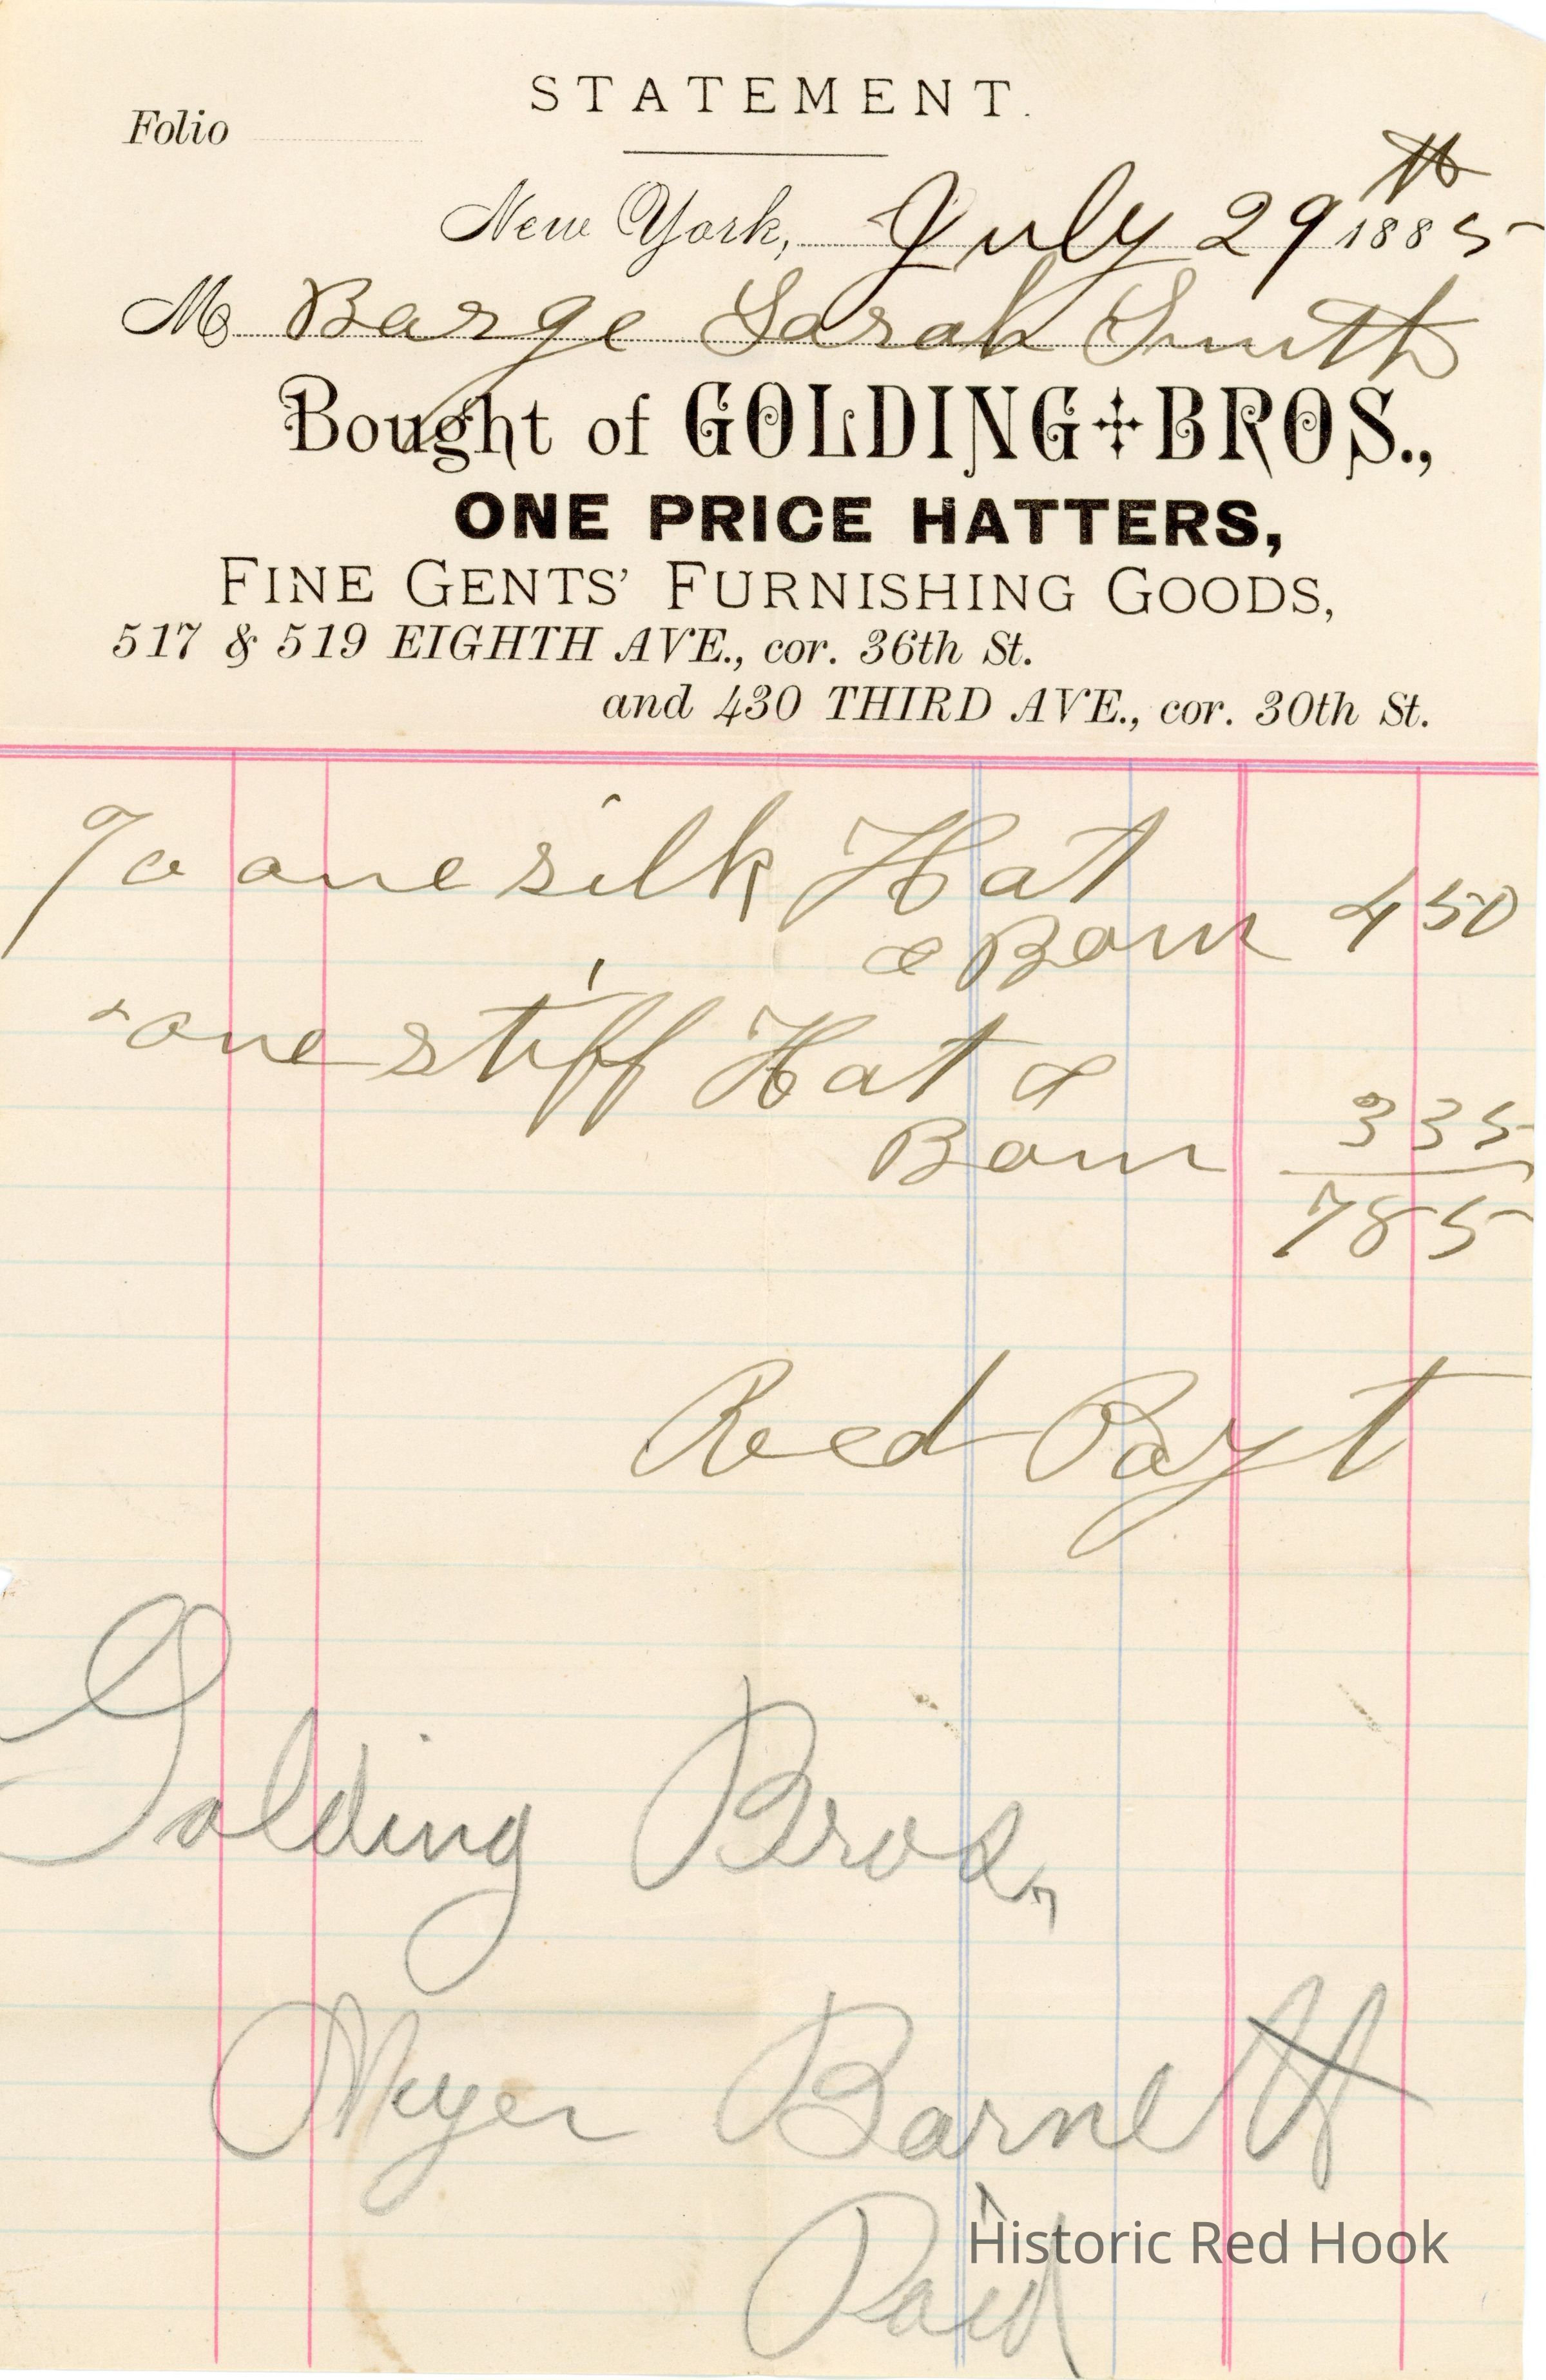 STATEMENT.
Folio
New York, July 29th 1885
M Barge Sarah Smith
Bought of GOLDING BROS.,
ONE PRICE HATTERS,
FINE GENTS' FURNISHING GOODS,
517 & 519 EIGHTH AVE., cor. 36th St.
and 430 THIRD AVE., cor. 30th St.
To one silk Hat
& Box 4 50
" one stiff Hat &
Box 3 35
7 85
Recd Payt
Golding Bros,
Meyer Barnett
Paid
Historic Red Hook